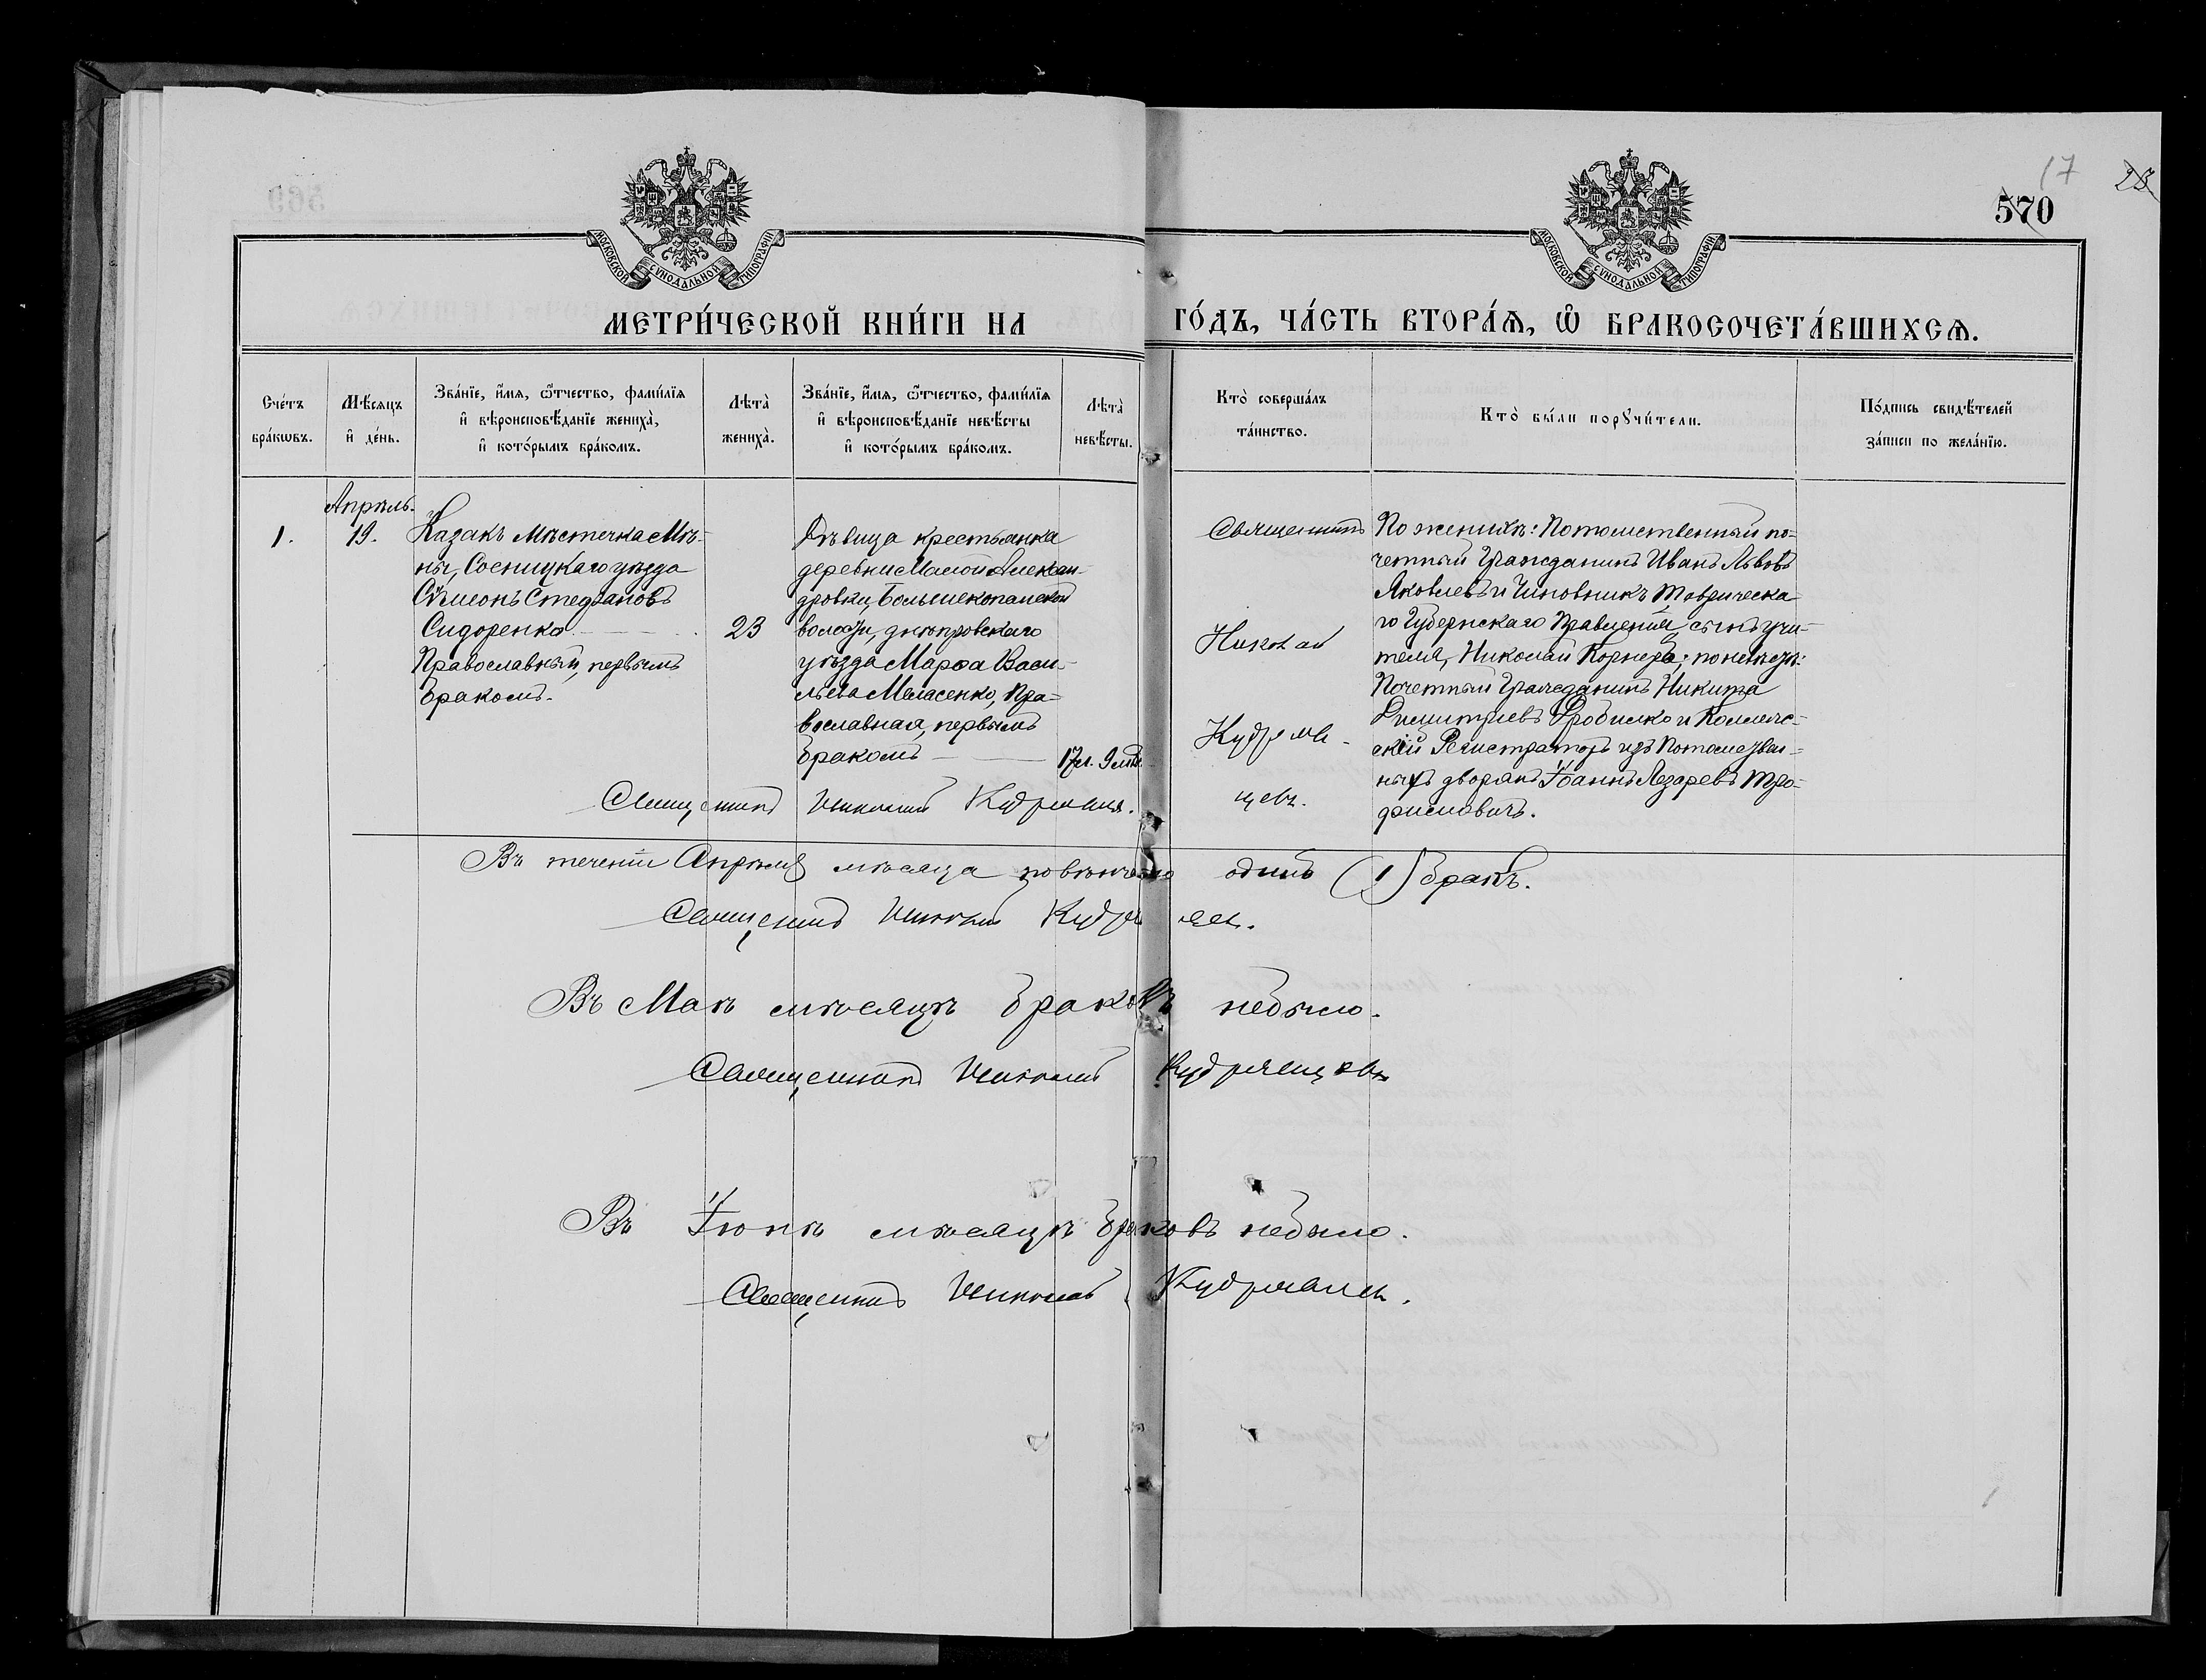 17 23
570
МОСКОВСКОЙ СѴНОДАЛЬНОЙ ТИПОГРАФІИ
МОСКОВСКОЙ СѴНОДАЛЬНОЙ ТИПОГРАФІИ
МЕТРИ́ЧЕСКОЙ КНИ́ГИ НА ГО́ДЪ, ЧА́СТЬ ВТОРА́Я, Ѽ БРАКОСОЧЕТА́ВШИХСЯ.
Сче́тъ
бра́кѡвъ.
Мѣ́сяцъ
и҆ де́нь.
Зва́нїе, и҆́мя, ѻ҆́тчество, фами́лїя
и҆ вѣроисповѣ́данїе жениха̀,
и҆ кото́рымъ бра́комъ.
Лѣта̀
жениха̀.
Зва́нїе, и҆́мя, ѻ҆́тчество, фами́лїя
и҆ вѣроисповѣ́данїе невѣ́сты
и҆ кото́рымъ бра́комъ.
Лѣта̀
невѣ́сты.
Кто̀ соверша́лъ
та́инство.
Кто̀ бы́ли порꙋчи́тели.
По́дпись свидѣ́телей
за́писи по жела́нїю.
1.
Апрѣль.
19.
Казакъ мѣстечка Мѣ-
ны, Сосницкаго уѣзда
Сѵмеонъ Стефановъ
Сидоренко
Православный, первымъ
бракомъ.
23
Дѣвица крестьянка
деревни Малой Алексан-
дровки, Большекопанской
волости, днѣпровскаго
уѣзда Марѳа Васи-
льева Меласенко, Пра-
вославная, первымъ
бракомъ
17 л. 9 мѣс.
Священникъ
Николай
Кудрявцевъ.
По женихѣ: Потомственный по-
четный Гражданинъ Иванъ Львовъ
Яковлевъ и Чиновникъ Таврическа-
го Губернскаго Правленія, сынъ учи-
теля, Николай Корнеръ; по невѣстѣ:
Почетный Гражданинъ Никита
Димитріевъ Дробилко и Коллеж-
скій Регистраторъ изъ Потомствен-
ныхъ дворянъ Іоаннъ Лазаревъ Тро-
фимовичъ.
Священникъ Николай Кудрявцевъ.
Въ теченіи Апрѣля мѣсяца повѣнчано одинъ (1) бракъ.
Священникъ Николай Кудрявцевъ.
Въ Маѣ мѣсяцѣ браковъ небыло.
Священникъ Николай Кудрявцевъ
Въ Іюнѣ мѣсяцѣ браковъ небыло.
Священникъ Николай Кудрявцевъ.